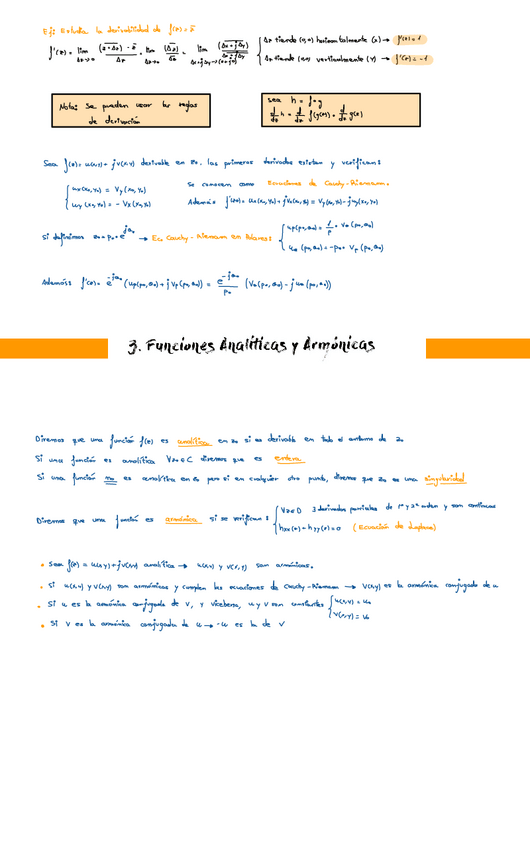 Ej: Estudia la derivabilidad de f(z) = z̄
f'(z) = lim Δz→0 (z+Δz)‾ - z̄ / Δz = lim Δz→0 (Δz)‾ / Δz = lim Δx+jΔy→(0+j0) (Δx+jΔy)‾ / Δx+jΔy { Δz tiende (0,0) horizontalmente (x) → f'(z) = 1
Δz tiende (0,0) verticalmente (Y) → f'(z) = -1
Nota: Se pueden usar las reglas
de derivación
sea h = f∘g
d/dz h = d/dz f(g(z)) · d/dz g(z)
Sea f(z) = u(x,y) + jv(x,y) derivable en z₀. las primeras derivadas existen y verifican:
{ ux(x₀,y₀) = Vy(x₀,y₀)
uy(x₀,y₀) = - Vx(x₀,y₀)
Se conocen como Ecuaciones de Cauchy-Riemann.
Además f'(z₀) = ux(x₀,y₀) + jVx(x₀,y₀) = Vy(x₀,y₀) - juy(x₀,y₀)
Si definimos z₀ = ρ₀·e^jθ₀ → Ec. Cauchy-Riemann en Polares { uρ(ρ₀,θ₀) = 1/ρ₀ · Vθ(ρ₀,θ₀)
uθ(ρ₀,θ₀) = -ρ₀ · Vρ(ρ₀,θ₀)
Además f'(z) = e^-jθ₀ (uρ(ρ₀,θ₀) + j Vρ(ρ₀,θ₀)) = e^-jθ₀ / ρ₀ (Vθ(ρ₀,θ₀) - j uθ(ρ₀,θ₀))
3. Funciones Analíticas y Armónicas
Diremos que una función f(z) es analítica en z₀ si es derivable en todo el entorno de z₀
Si una función es analítica ∀z₀∈C diremos que es entera.
Si una función no es analítica en z₀ pero sí en cualquier otro punto, diremos que z₀ es una singularidad
Diremos que una función es armónica si se verifican: { ∀z∈D ∃ derivadas parciales de 1º y 2º orden y son continuas
hxx(z) + hyy(z) = 0 (Ecuación de Laplace)
• Sea f(z) = u(x,y) + jv(x,y) analítica → u(x,y) y v(x,y) son armónicas.
• Si u(x,y) y v(x,y) son armónicas y cumplen las ecuaciones de Cauchy-Riemann → V(x,y) es la armónica conjugada de u
• Si u es la armónica conjugada de v, y viceversa, u y v son constantes { u(x,y) = u₀
V(x,y) = V₀
• Si V es la armónica conjugada de u → -u es la de V